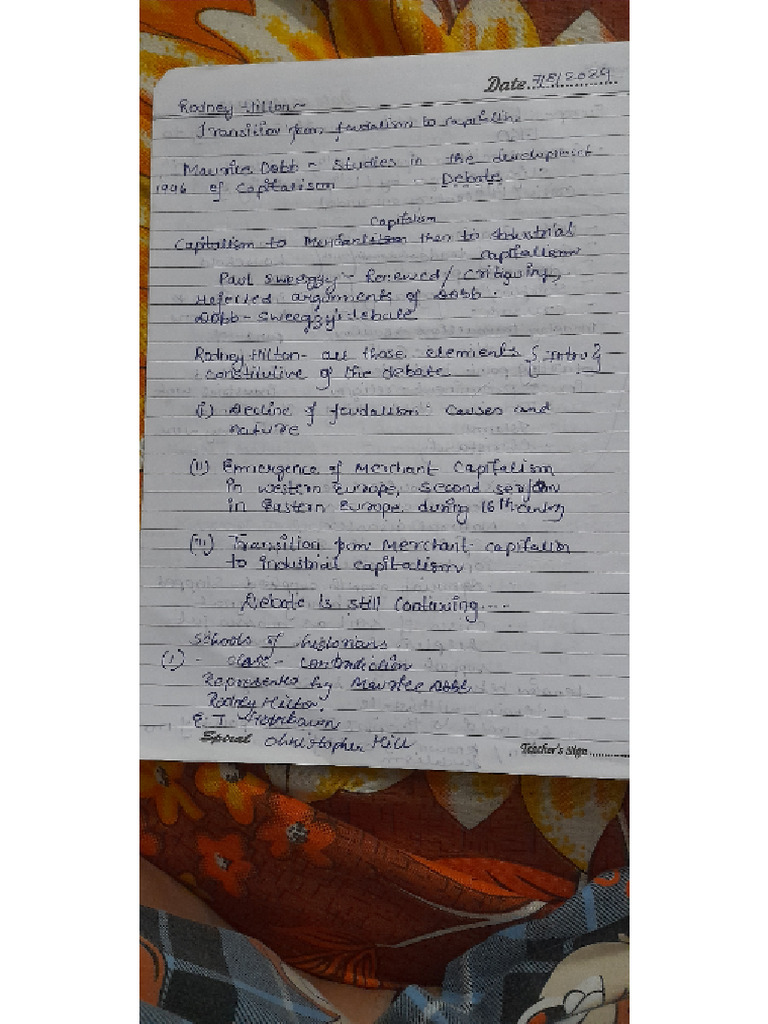 Date. 7/8/2024
Rodney Hilton -
Transition from feudalism to capitalism
Maurice Dobb - Studies in the development
1946 of capitalism - Debate
Capitalism
Capitalism to Merchantilism then to Industrial
capitalism
Paul Sweegzy - Renewed/ Critiquing,
Refected arguments of Dobb.
Dobb - Sweegzy's debate
Rodney Hilton - all those elements { Intro }
constitutive of the debate
(i) Decline of feudalism: Causes and
nature
(ii) Emergence of Merchant Capitalism
in western Europe, Second serfdom
in Eastern Europe during 16th century
(iii) Transition from Merchant capitalism
to industrial capitalism
Debate is still Continuing....
Schools of historians
(1) - class - contradiction
Represented by Maurice Dobb
Rodney Hilton.
E. J Hobsbawm
Christopher Hill
Spiral
Teacher's Sign..........